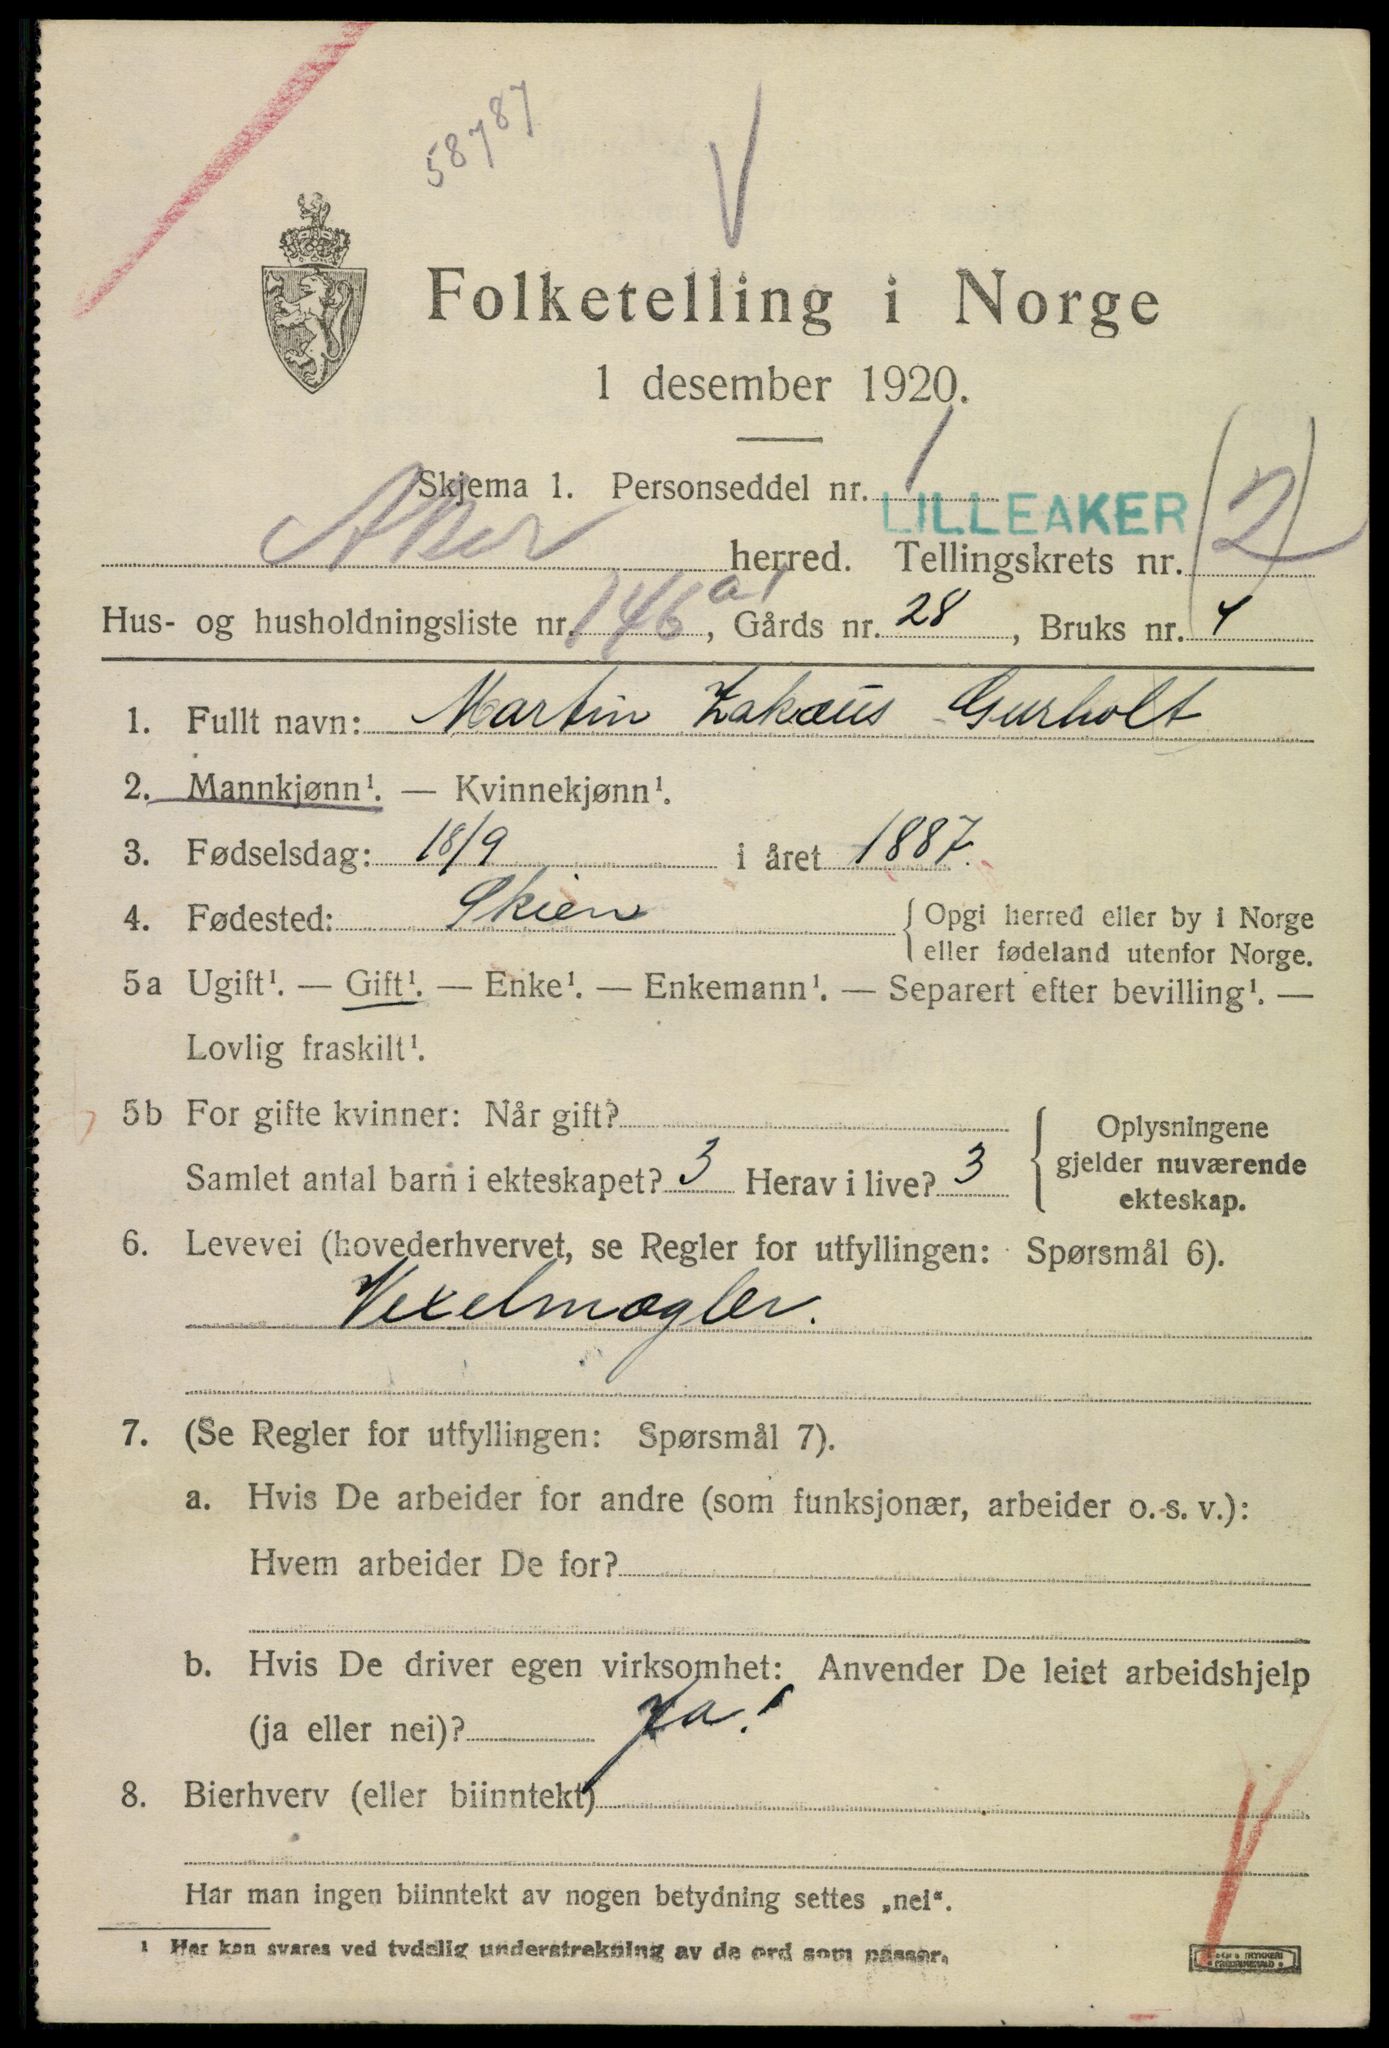 58787
V
Folketelling i Norge
1 desember 1920.
Skjema 1. Personseddel nr. 1
LILLEAKER
Aker herred. Tellingskrets nr. (2)
Hus- og husholdningsliste nr. 146 a1, Gårds nr. 28, Bruks nr. 4
1. Fullt navn: Martin Zakæus Gurholt
2. Mannkjønn¹. — Kvinnekjønn¹.
3. Fødselsdag: 18/9 i året 1887.
4. Fødested: Skien { Opgi herred eller by i Norge
eller fødeland utenfor Norge.
5a Ugift¹. — Gift¹. — Enke¹. — Enkemann¹. — Separert efter bevilling¹. —
Lovlig fraskilt¹.
5b For gifte kvinner: Når gift?
Samlet antal barn i ekteskapet? 3 Herav i live? 3
{ Oplysningene
gjelder nuværende
ekteskap.
6. Levevei (hovederhvervet, se Regler for utfyllingen: Spørsmål 6).
Vexelmægler.
7. (Se Regler for utfyllingen: Spørsmål 7).
a. Hvis De arbeider for andre (som funksjonær, arbeider o. s. v.):
Hvem arbeider De for?
b. Hvis De driver egen virksomhet: Anvender De leiet arbeidshjelp
(ja eller nei)? Ja!
8. Bierhverv (eller biinntekt)
Har man ingen biinntekt av nogen betydning settes „nei“.
¹ Her kan svares ved tydelig understrekning av de ord som passer.